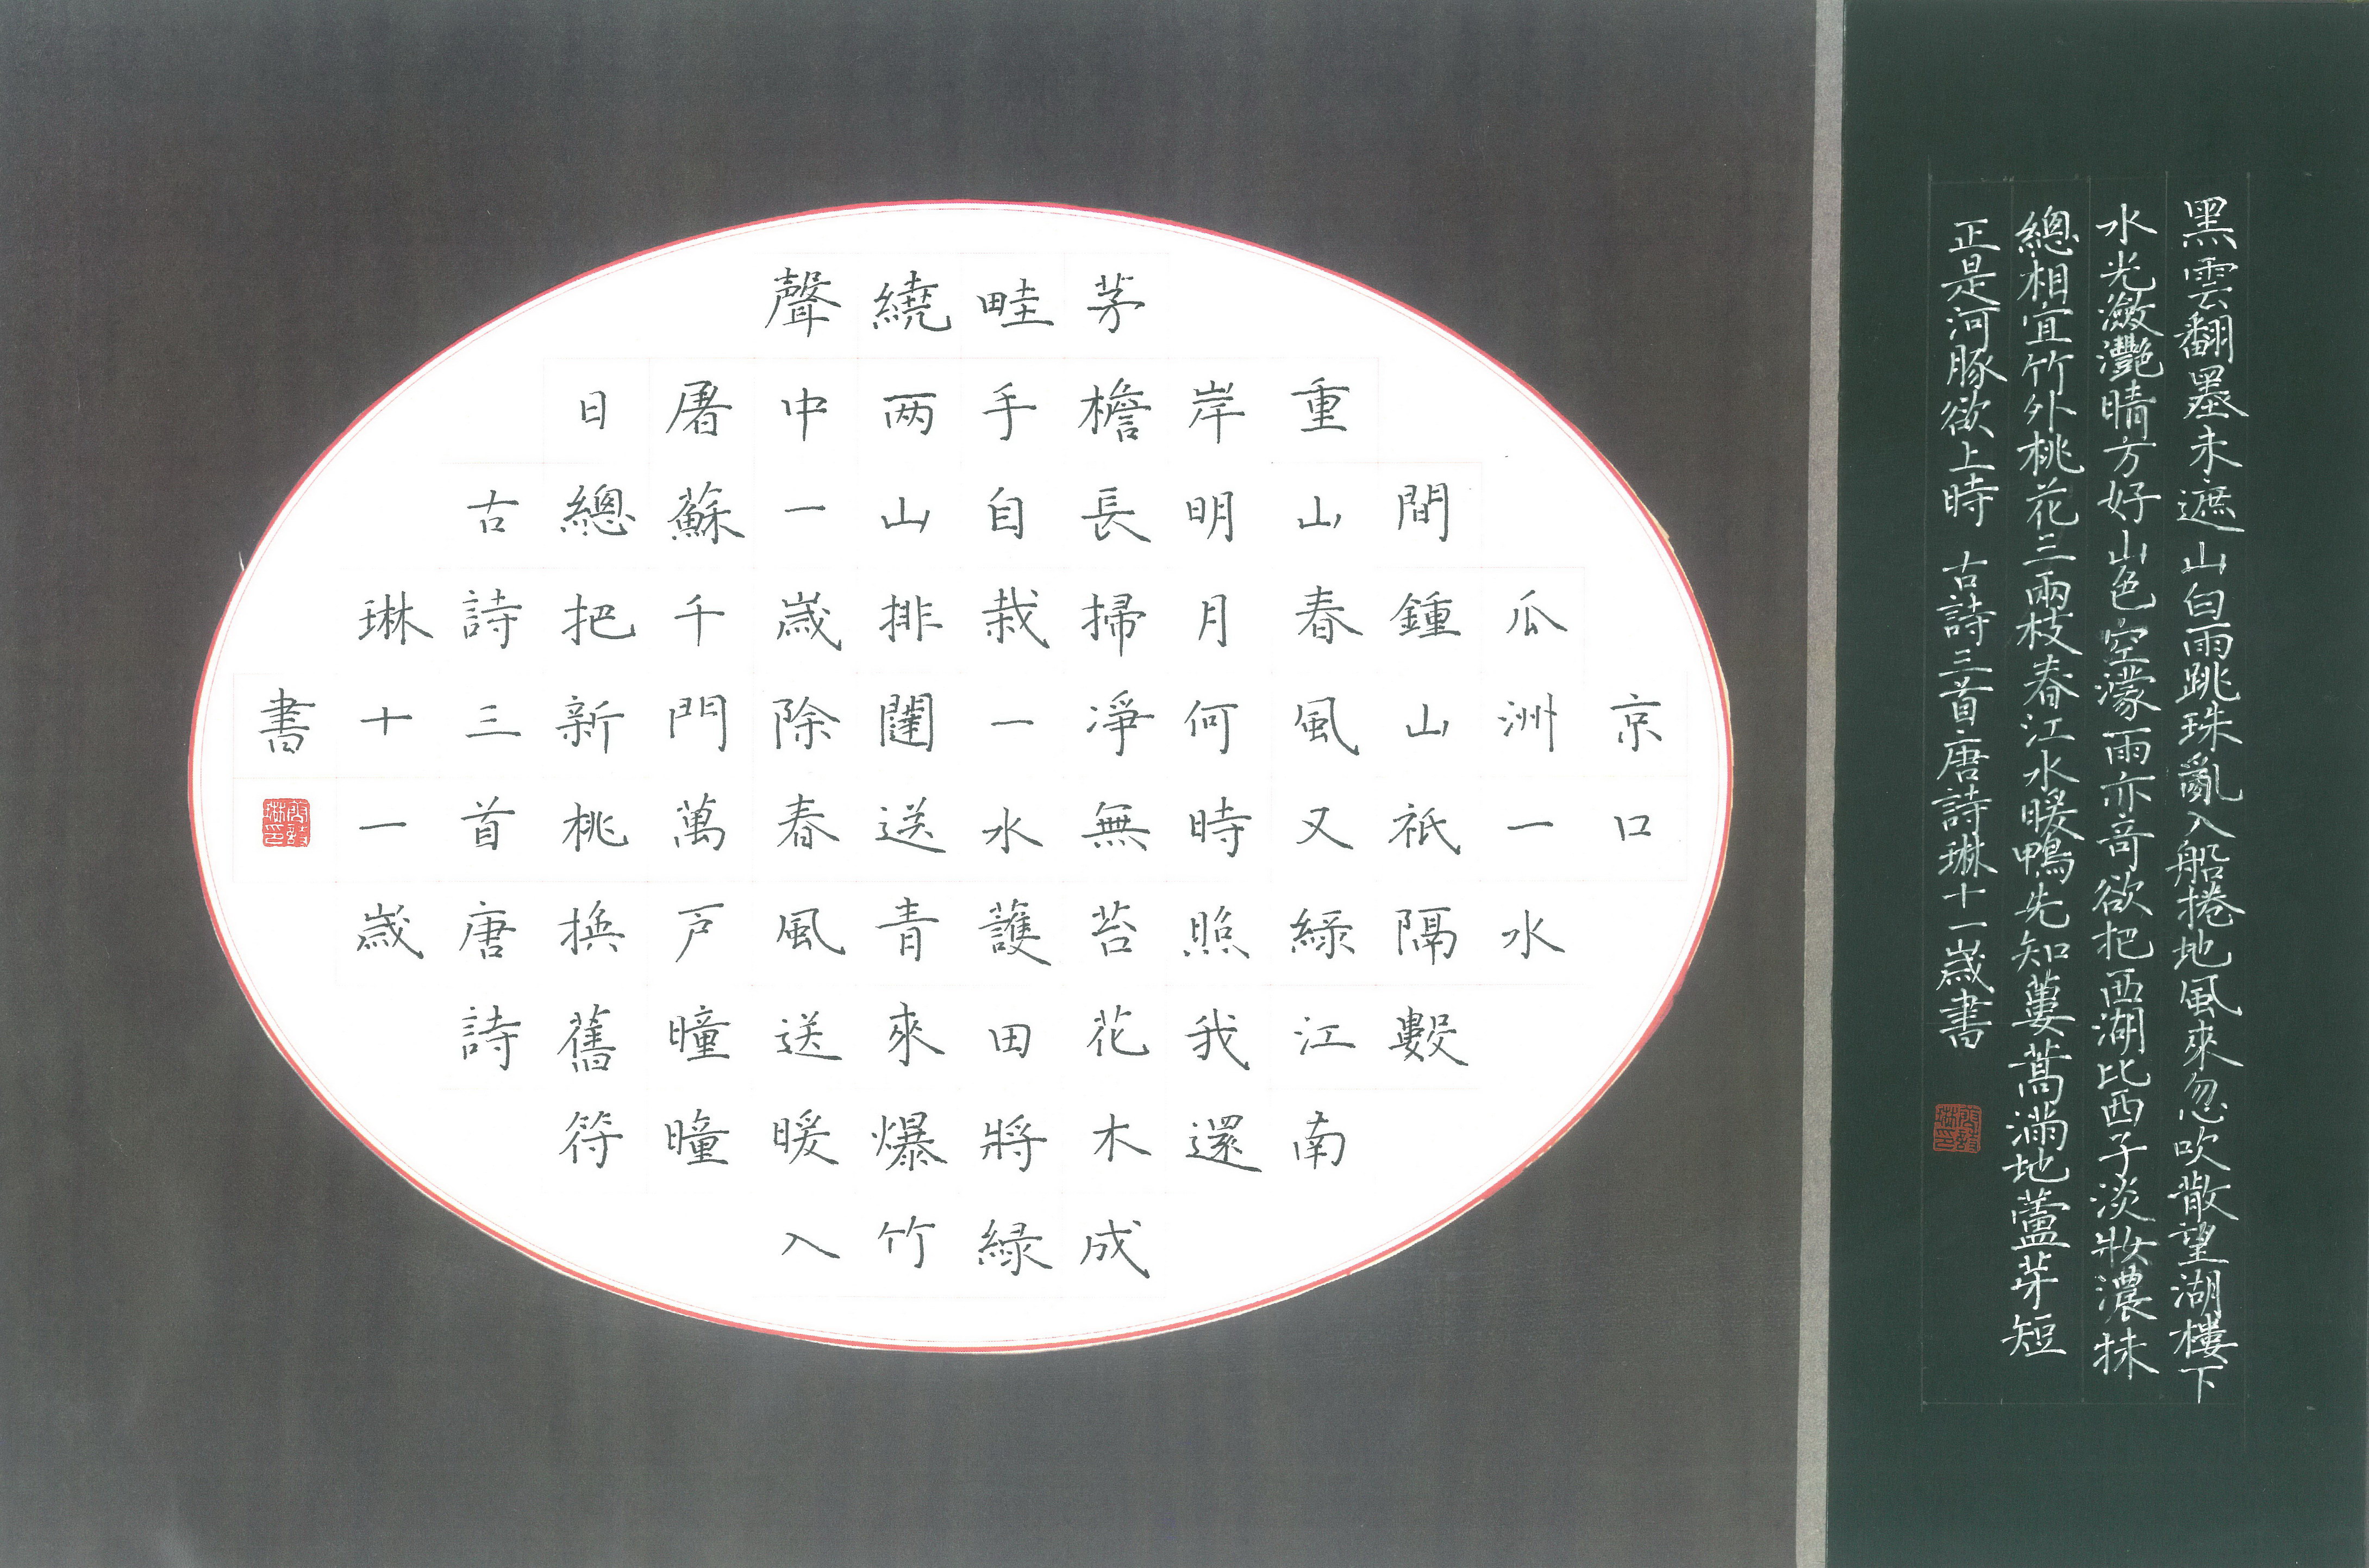 黑雲翻墨未遮山白雨跳珠亂入船捲地風來忽吹散望湖樓下
水光瀲灩晴方好山色空濛雨亦奇欲把西湖比西子淡妝濃抹
總相宜竹外桃花三兩枝春江水暖鴨先知蔞蒿滿地蘆芽短
正是河豚欲上時 古詩三首唐詩琳十一歲書
唐詩琳印
京口
瓜洲一水
間鍾山祇隔數
重山春風又綠江南
岸明月何時照我還
茅檐長掃淨無苔花木成
畦手自栽一水護田將緑
繞两山排闥送青來爆竹
聲中一歲除春風送暖入
屠蘇千門萬戶曈曈
日總把新桃換舊符
古詩三首唐詩
琳十一歲
書
唐詩琳印